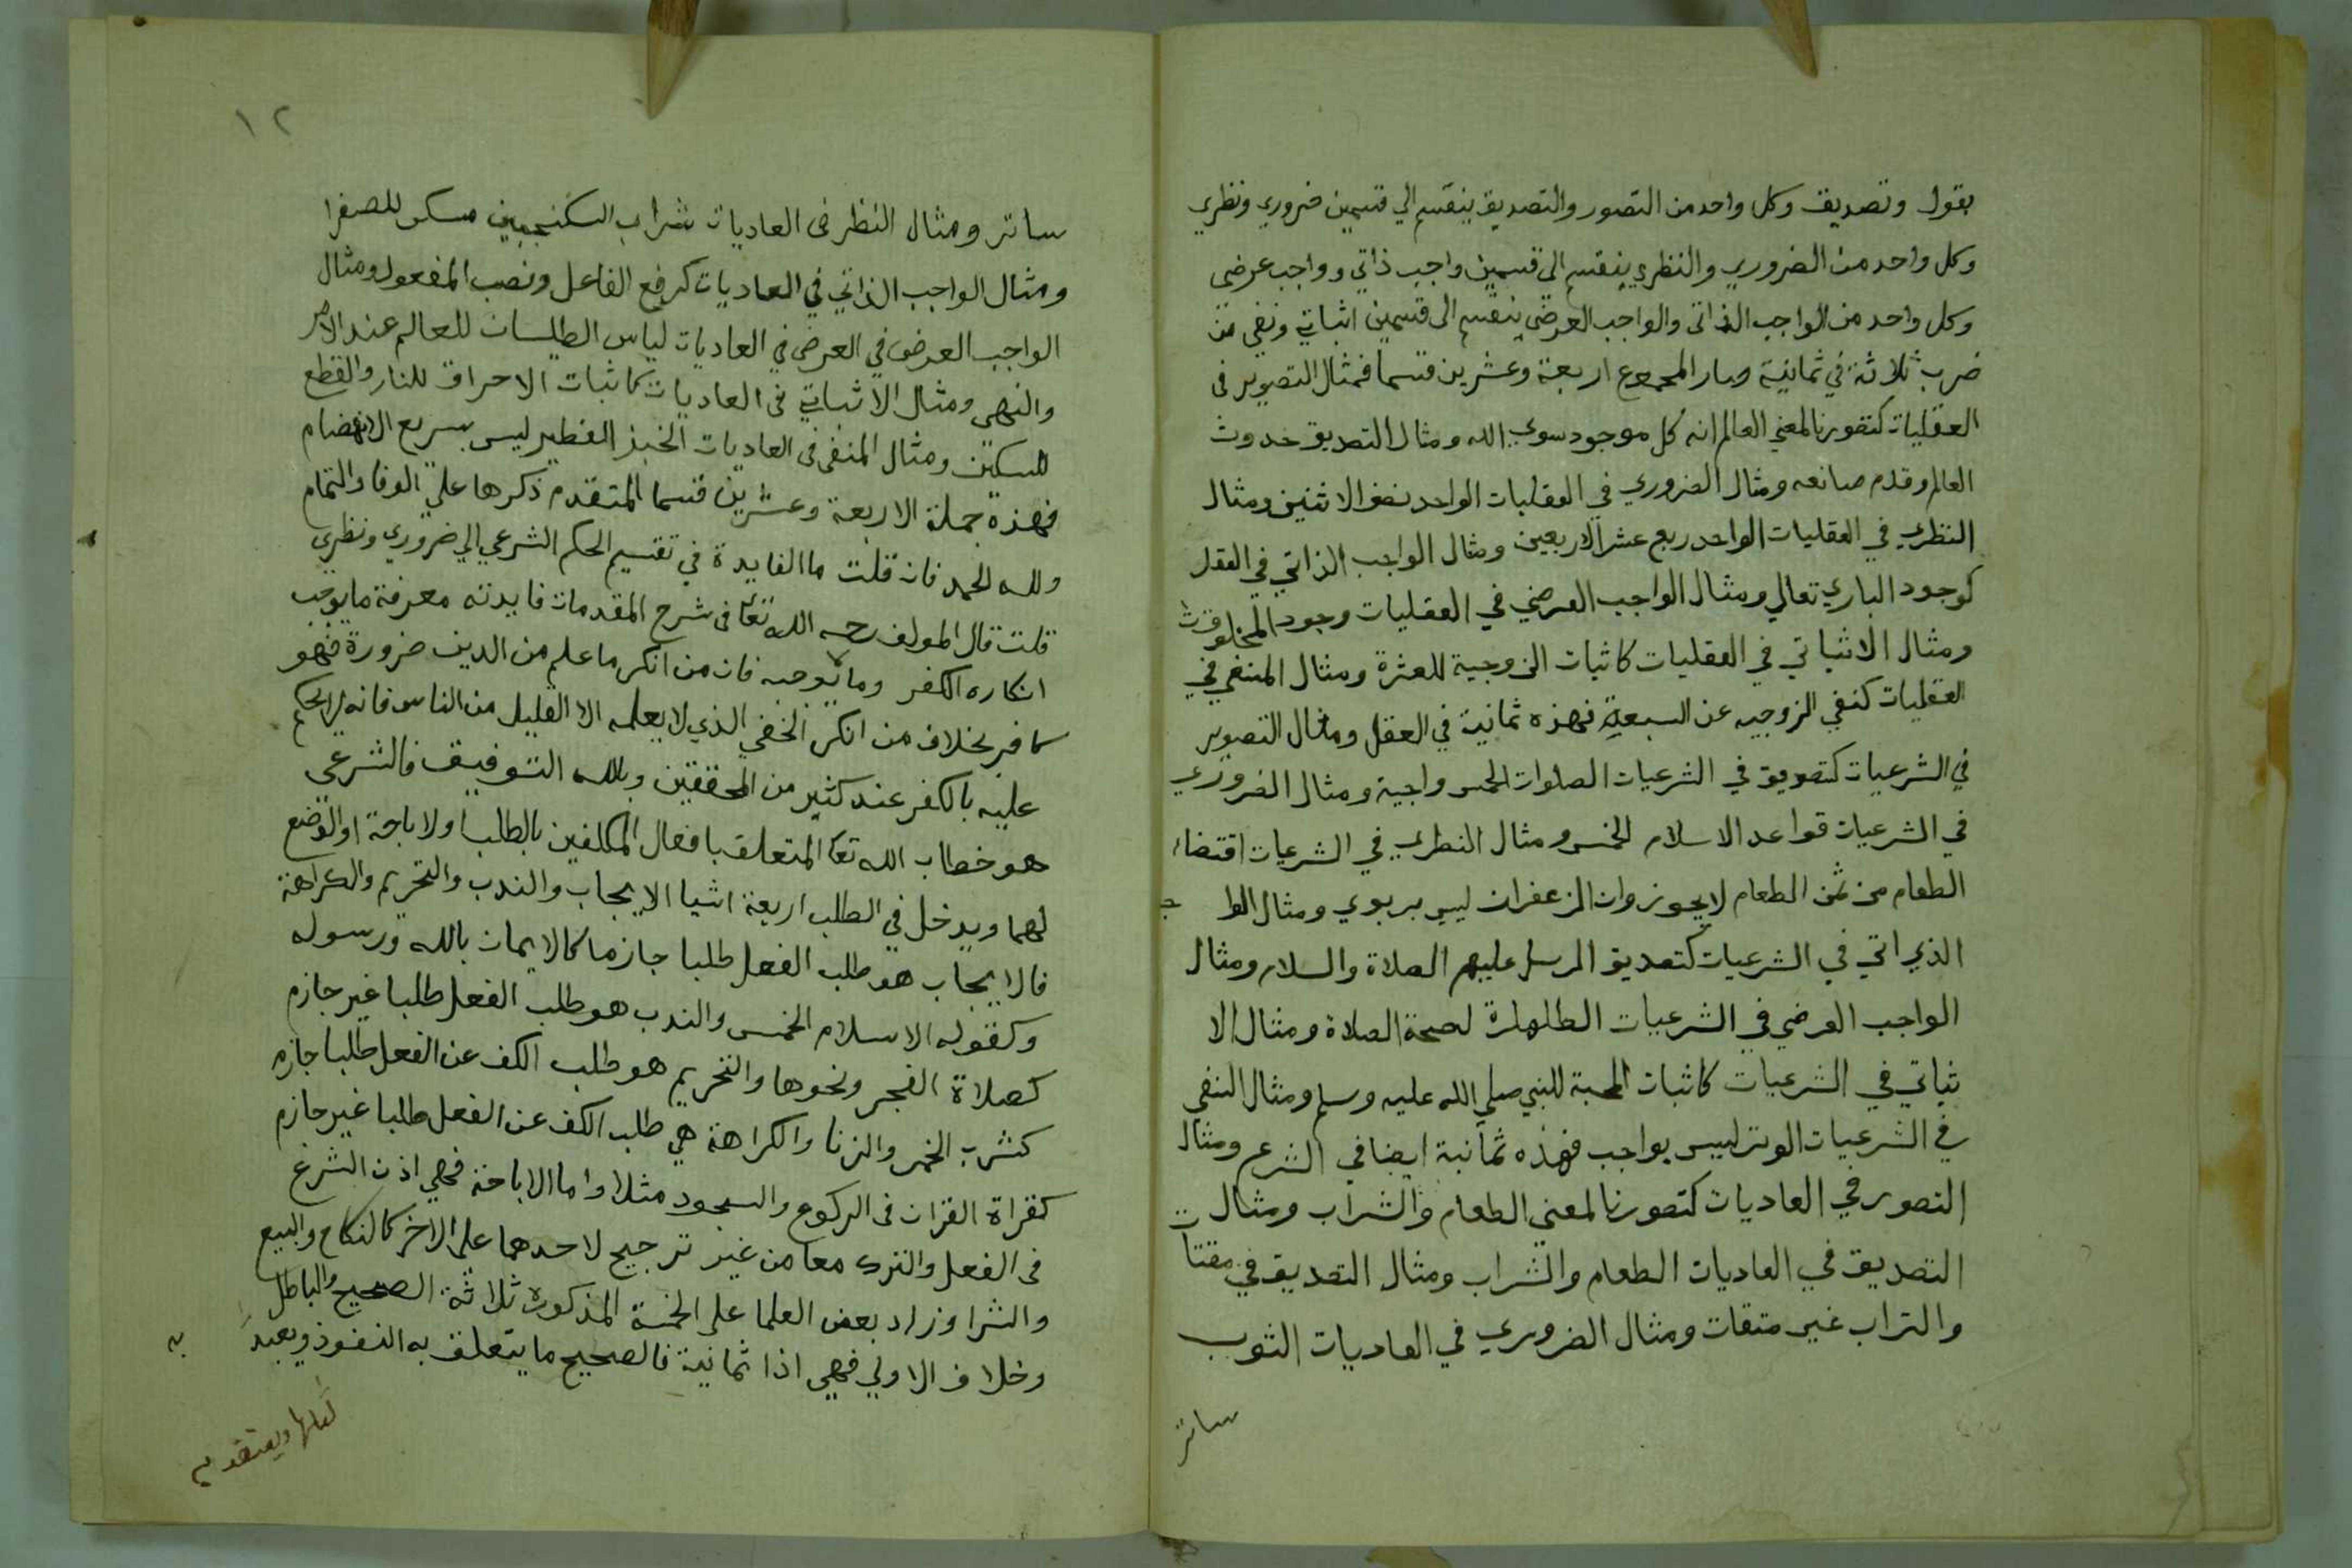 بقول وتصديق وكل واحد من التصور والتصديق ينقسم الي قسمين ضروري ونظري
وكل واحد من الضروري والنظري ينقسم الى قسمين واجب ذاتي وواجب عرضي
وكل واحد من الواجب الذاتي والواجب العرضي ينقسم الى قسمين اثباتي ونفي من
ضرب ثلاثة في ثمانية وصار المجموع اربعة وعشرين قسما فمثال التصوير في
العقليات كتصورنا لمعني العالم انه كل موجود سوي الله ومثال التصديق حدوث
العالم وقدم صانعه ومثال الضروري في العقليات الواحد نصف الاثنين ومثال
النظري في العقليات الواحد ربع عشر الاربعين ومثال الواجب الذاتي في العقل
كوجود الباري تعالي ومثال الواجب العرضي في العقليات وجود المخلوقات
ومثال الاثباتي في العقليات كاثبات الزوجية للعشرة ومثال المنفي في
العقليات كنفي الزوجيه عن السبعة فهذه ثمانية في العقل ومثال التصوير
في الشرعيات كتصديق في الشرعيات الصلوات الخمس واجبة ومثال الضروري
في الشرعيات قواعد الاسلام الخمس ومثال النظري في الشرعيات اقتضاء
الطعام من ثمن الطعام لا يجوز وان الزعفران ليس بربوي ومثال الواجب
الذي اتي في الشرعيات كتصديق المرسل عليهم الصلاة والسلام ومثال
الواجب العرضي في الشرعيات الطلهارة لصحة الصلاة ومثال الا
ثباتي في الشرعيات كاثبات المحبة للنبي صلي الله عليه وسلم ومثال النفي
في الشرعيات الوتر ليس بواجب فهذه ثمانية ايضا في الشرع ومثال
التصور في العاديات كتصورنا لمعني الطعام والشراب ومثال
التصديق في العاديات الطعام والشراب ومثال التصديق في مقتات
والتراب غير متقات ومثال الضروري في العاديات الثوب
ساتر
١٢
ساتر ومثال النظر في العاديات شراب السكنجبين مسكن للصفرا
ومثال الواجب الذاتي في العاديات كرفع الفاعل ونصب المفعول ومثال
الواجب العرضي في العرض في العاديات لباس الطليسان للعالم عند الامر
والنهي ومثال الاثباتي في العاديات كاثبات الاحراق للنار والقطع
للسكين ومثال المنفي في العاديات الخبز الفطير ليس بسريع الانهضام
فهذه جملة الاربعة وعشرين قسما المتقدم ذكرها علي الوفا والتمام
ولله الحمد فان قلت ما الفايدة في تقسيم الحكم الشرعي الي ضروري ونظري
قلت قال المولف رحمه الله تعا في شرح المقدمات فايدته معرفة ما يوجب
انكاره الكفر وما لا يوجبه فان من انكر ما علم من الدين ضرورة فهو
كافر بخلاف من انكر الخفي الذي لا يعلمه الا القليل من الناس فانه لا يحكم
عليه بالكفر عند كثير من المحققين وبالله التوفيق فالشرعي
هو خطاب الله تعا المتعلق بافعال المكلفين بالطلب اولاباحة او الوضع
لهما ويدخل في الطلب اربعة اشيا الايجاب والندب والتحريم والكراهة
فالايجاب هو طلب الفعل طلبا جازما كالايمان بالله ورسوله
وكقوله الاسلام الخمس والندب هو طلب الفعل طلبا غير جازم
كصلاة الفجر ونحوها والتحريم هو طلب الكف عن الفعل طلبا جازم
كشرب الخمر والزنا والكراهة هي طلب الكف عن الفعل طلبا غير جازم
كقراة القران في الركوع والسجود مثلا واما الاباحة فهي اذن الشرع
في الفعل والترك معا من غير ترجيح لاحدهما علي الاخر كالنكاح والبيع
والشرا وزاد بعض العلما علي الخمسة المذكورة ثلاثة الصحيح والباطل
وخلاف الاولي فهي اذا ثمانية فالصحيح ما يتعلق به النفوذ ويعبد به